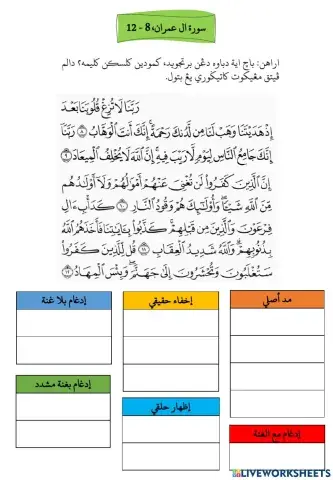 سورة ال عمران: 8 - 12
اراهن: باچ اية دباوه دڠن برتجويد، کمودين کلسکن کليمه؟ دالم
ڤيتق مڠيکوت کاتيکوري يڠ بتول.
رَبَّنَا لَا تُزِغْ قُلُوبَنَا بَعْدَ
إِذْ هَدَيْتَنَا وَهَبْ لَنَا مِن لَّدُنكَ رَحْمَةً إِنَّكَ أَنتَ الْوَهَّابُ ٨ رَبَّنَا
إِنَّكَ جَامِعُ النَّاسِ لِيَوْمٍ لَّا رَيْبَ فِيهِ إِنَّ اللَّهَ لَا يُخْلِفُ الْمِيعَادَ ٩
إِنَّ الَّذِينَ كَفَرُوا لَن تُغْنِيَ عَنْهُمْ أَمْوَالُهُمْ وَلَا أَوْلَادُهُم
مِّنَ اللَّهِ شَيْئًا وَأُولَٰئِكَ هُمْ وَقُودُ النَّارِ ١٠ كَدَأْبِ آلِ
فِرْعَوْنَ وَالَّذِينَ مِن قَبْلِهِمْ كَذَّبُوا بِآيَاتِنَا فَأَخَذَهُمُ اللَّهُ
بِذُنُوبِهِمْ وَاللَّهُ شَدِيدُ الْعِقَابِ ١١ قُل لِّلَّذِينَ كَفَرُوا
سَتُغْلَبُونَ وَتُحْشَرُونَ إِلَىٰ جَهَنَّمَ وَبِئْسَ الْمِهَادُ ١٢
مد أصلي
إخفاء حقيقي
إدغام بلا غنة
إدغام بغنة مشدد
إظهار حلقي
إدغام مع الغنة
LIVEWORKSHEETS